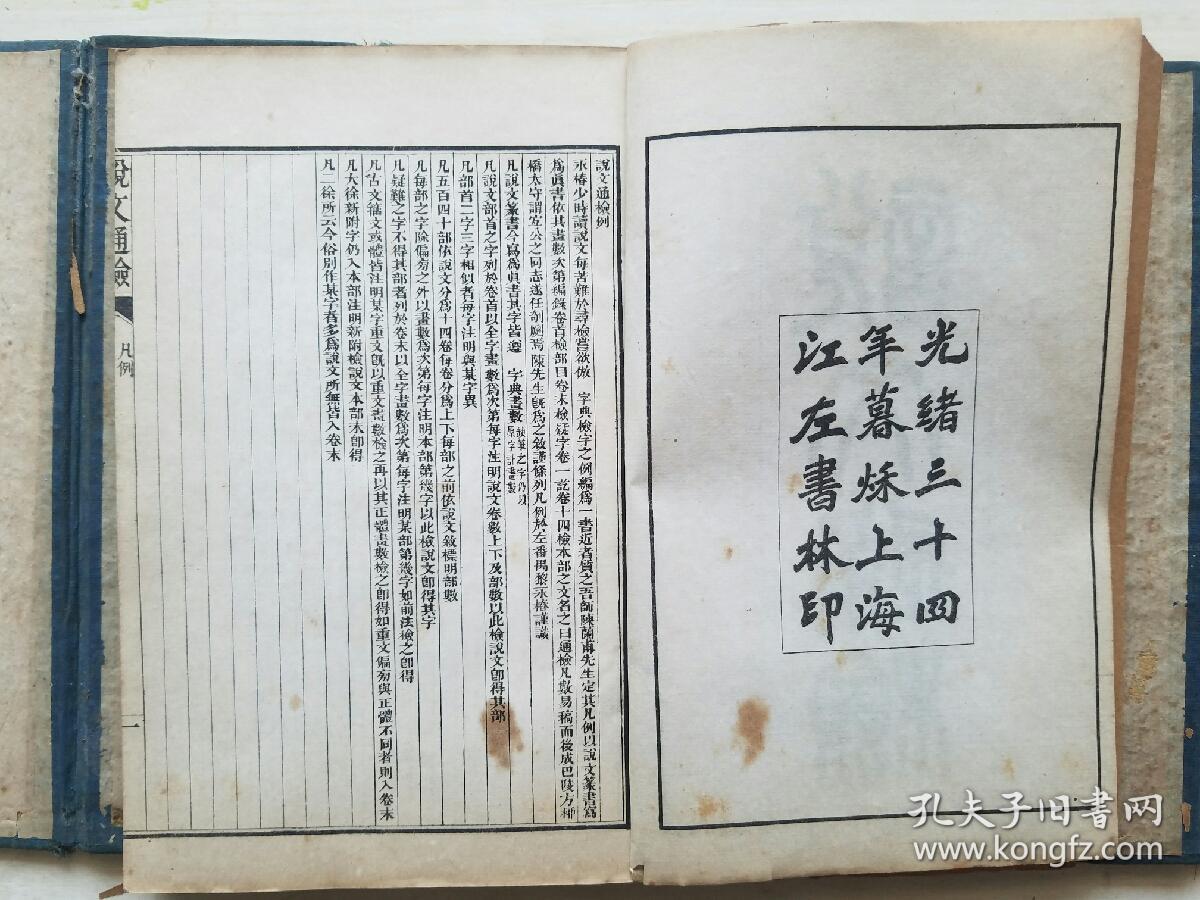 光緒三十四
年暮秌上海
江左書林印
說文通檢例
永椿少時讀說文每苦難於尋檢嘗欲倣 字典檢字之例編爲一書近者質之吾師陳蘭甫先生定其凡例以說文篆書寫
爲眞書依其畫數次第編錄卷首檢部目卷末檢疑字卷一訖卷十四檢本部之文名之曰通檢凡數易稿而後成巴陵方柳
橋太守謂宜公之同志遂任剞劂焉陳先生旣爲之敘謹條列凡例於左番禺黎永椿謹識
凡說文篆書今寫爲眞書其字皆遵 字典畫數
凡說文部首之字列於卷首以全字畫數爲次第每字注明說文卷數上下及部數以此檢說文卽得其部
凡部首二字三字相似者每字注明與某字異
凡五百四十部依說文分爲十四卷每卷分爲上下每部之前依說文敘標明部數
凡每部之字除偏旁之外以畫數爲次第每字注明本部第幾字以此檢說文卽得其字
凡疑難之字不得其部者列於卷末以全字畫數爲次第每字注明某部第幾字如前法檢之卽得
凡古文籒文或體皆注明某字重文旣以重文畫數檢之再以其正體畫數檢之卽得如重文偏旁與正體不同者則入卷末
凡大徐新附字仍入本部注明新附檢說文本部末卽得
凡二徐所云今俗別作某字者多爲說文所無皆入卷末
說文通檢
凡例
一
孔夫子旧书网
www.kongfz.com